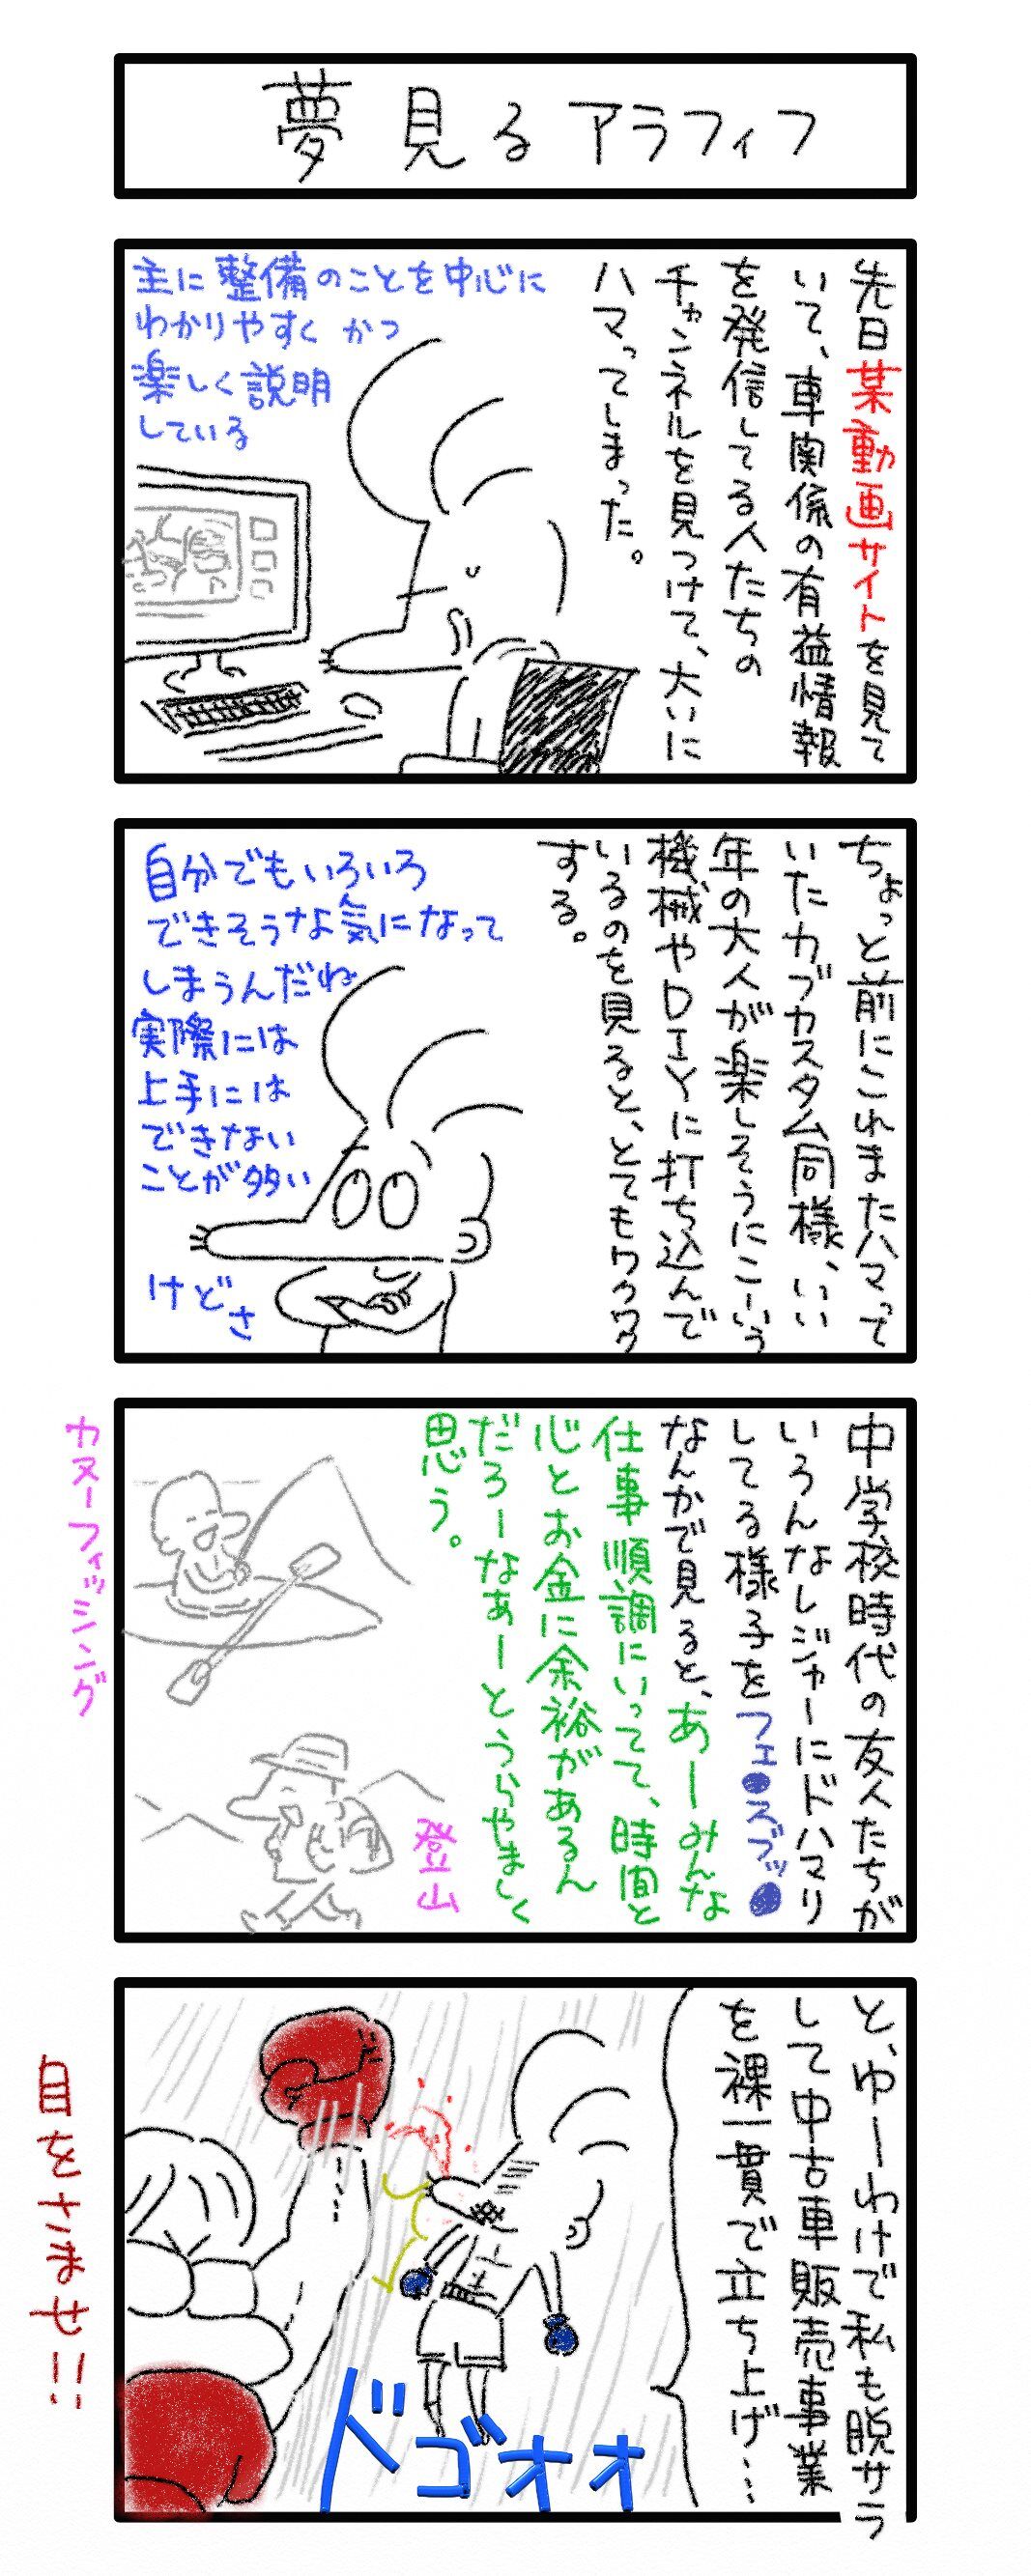 夢見るアラフィフ
先日某動画サイトを見て
いて、車関係の有益情報
を発信してる人たちの
チャンネルを見つけて、大いに
ハマってしまった。
主に整備のことを中心に
わかりやすく かつ
楽しく説明
している
ちょっと前にこれまたハマって
いたカブカスタム同様、いい
年の大人が楽しそうにこーいう
機械やDIYに打ち込んで
いるのを見ると、とてもワクワク
する。
自分でもいろいろ
できそうな気になって
しまうんだね
実際には
上手には
できない
ことが多い
けどさ
中学校時代の友人たちが
いろんなレジャーにドハマリ
してる様子をフェ●スブッ●
なんかで見ると、あーみんな
仕事順調にいってて、時間と
心とお金に余裕があるん
だろーなぁーとうらやましく
思う。
カヌーフィッシング
登山
と、ゆーわけで私も脱サラ
して中古車販売事業
を裸一貫で立ち上げ…
ドゴォオ
目をさませ!!